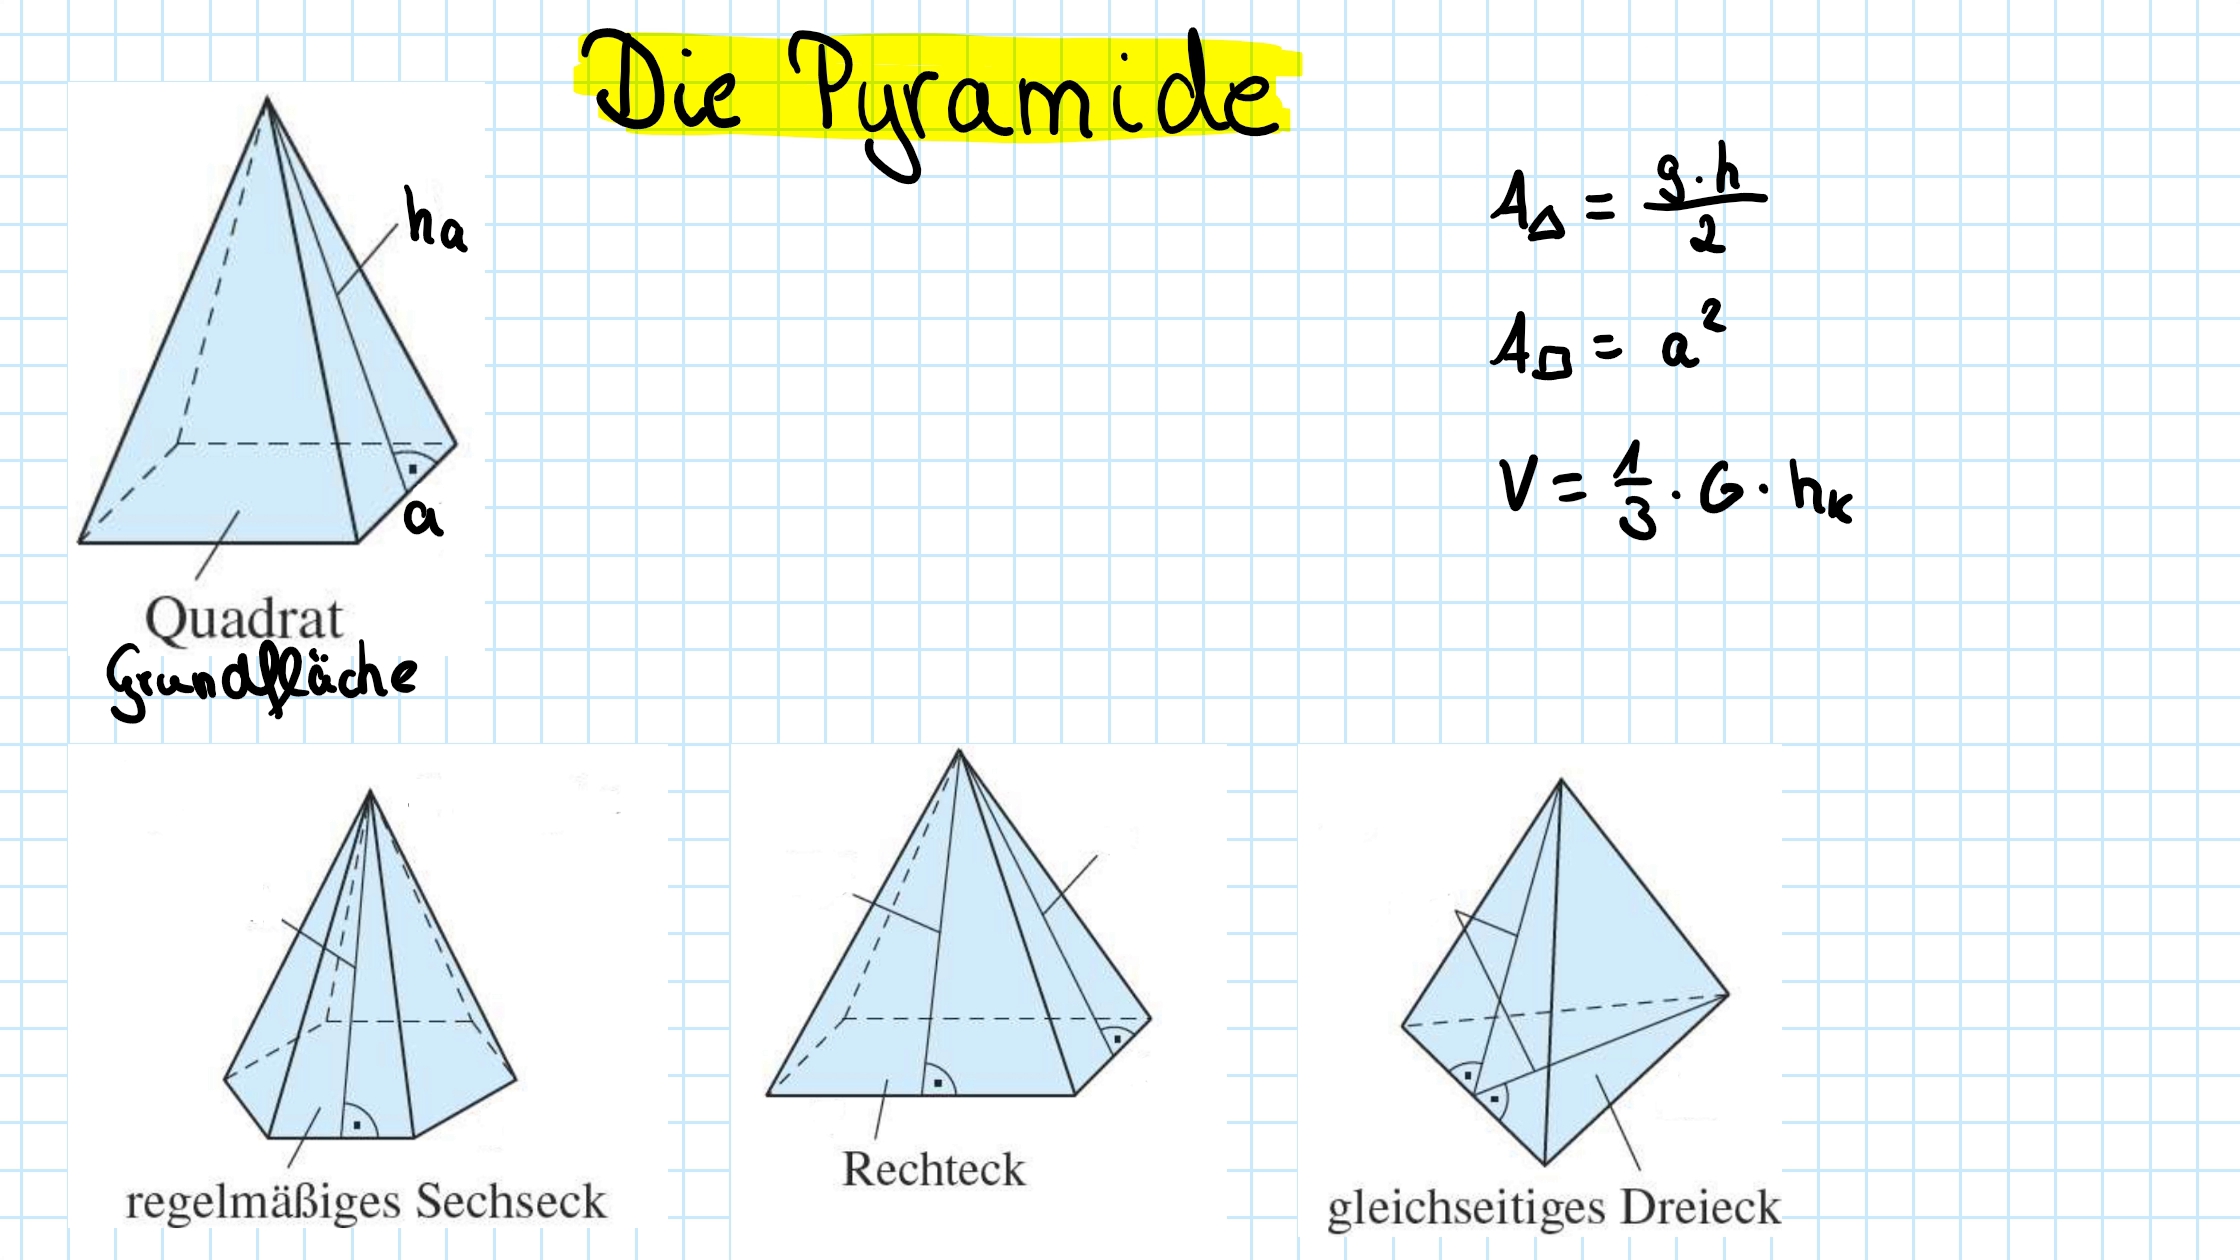 Die Pyramide
ha
a
Quadrat
Grundfläche
A△ = g·h/2
A□ = a²
V = 1/3 · G · hₖ
regelmäßiges Sechseck
Rechteck
gleichseitiges Dreieck